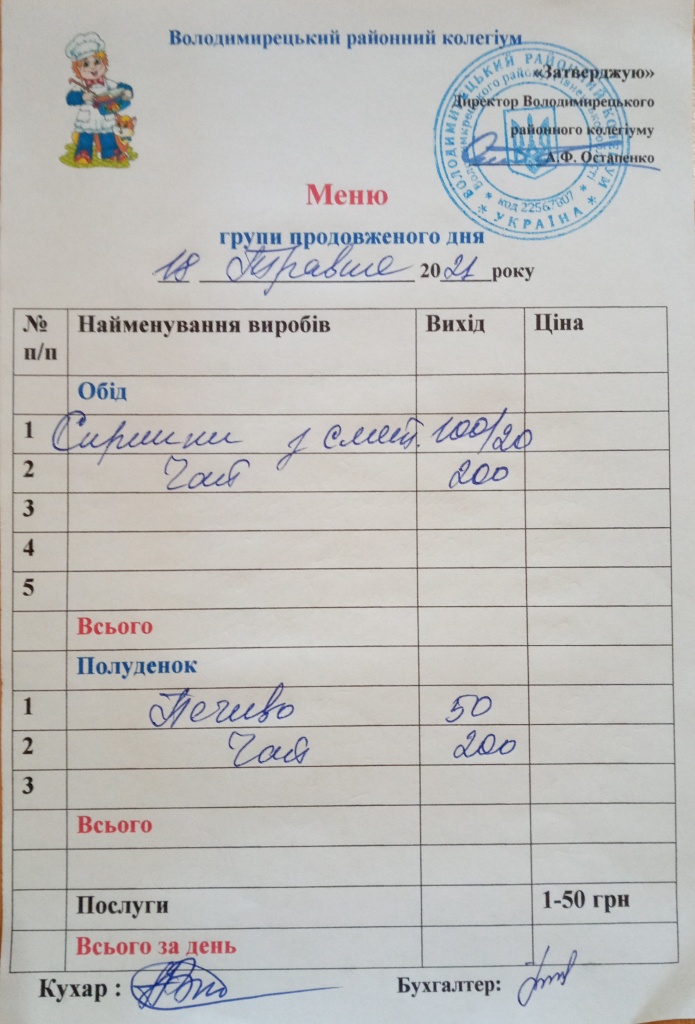 Володимирецький районний колегіум
«Затверджую»
Директор Володимирецького
районного колегіуму
А.Ф. Остапенко
ВОЛОДИМИРЕЦЬКИЙ РАЙОННИЙ КОЛЕГІУМ * УКРАЇНА *
Меню
групи продовженого дня
18 Травня 2021 року
№ п/п Найменування виробів Вихід Ціна
Обід
1 Сирники з смет. 100/20
2 Чай 200
3
4
5
Всього
Полуденок
1 Печиво 50
2 Чай 200
3
Всього
Послуги 1-50 грн
Всього за день
Кухар : Бухгалтер: